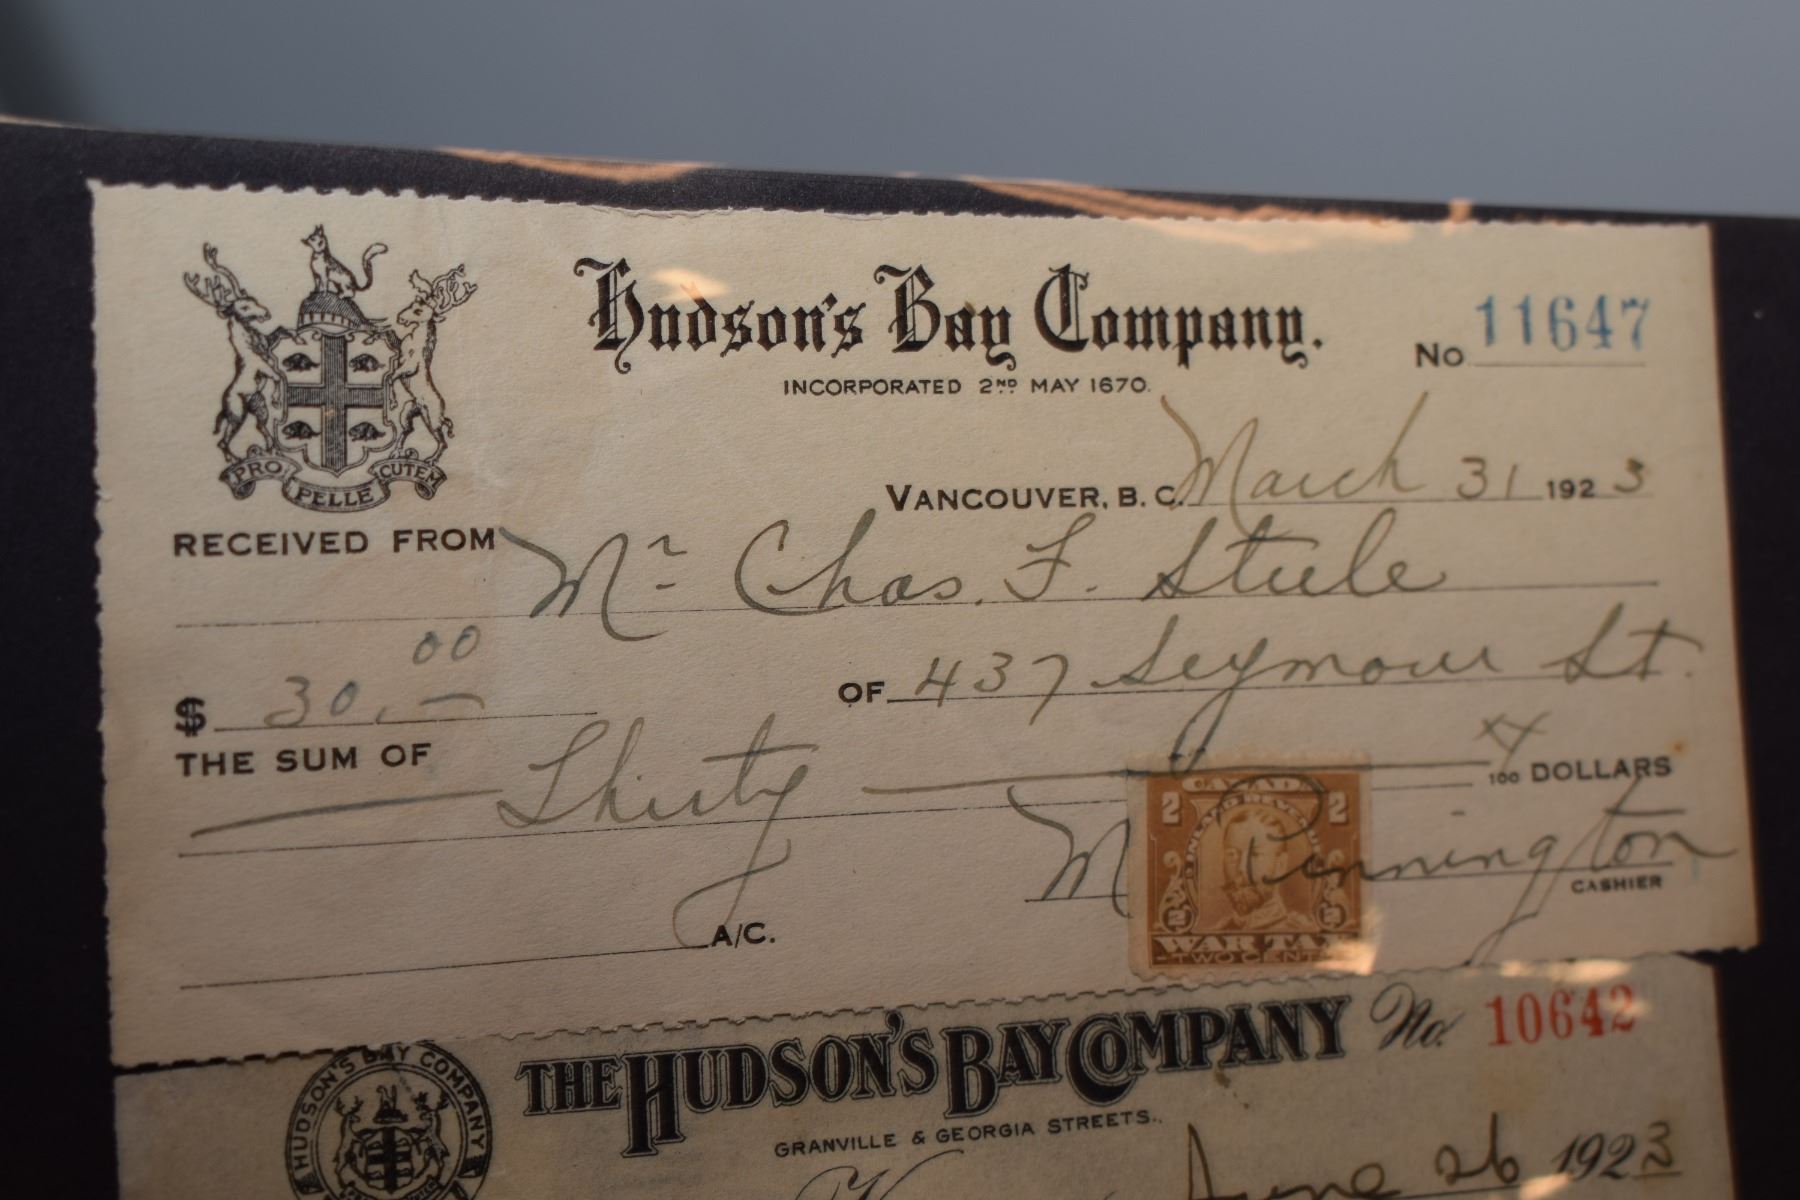 Hudson's Bay Company.
No 11647
INCORPORATED 2ND MAY 1670.
PRO PELLE CUTEM
VANCOUVER, B. C. March 31 1923
RECEIVED FROM Mr Chas. F. Steele
$ 30.00 OF 437 Seymour St.
THE SUM OF Thirty xx/100 DOLLARS
M Pennington
CASHIER
A/C.
2 CANADA 2
INLAND REVENUE
2 2
WAR TAX
TWO CENTS
THE HUDSON'S BAY COMPANY No. 10642
HUDSON'S BAY COMPANY
GRANVILLE & GEORGIA STREETS.
June 26 1923